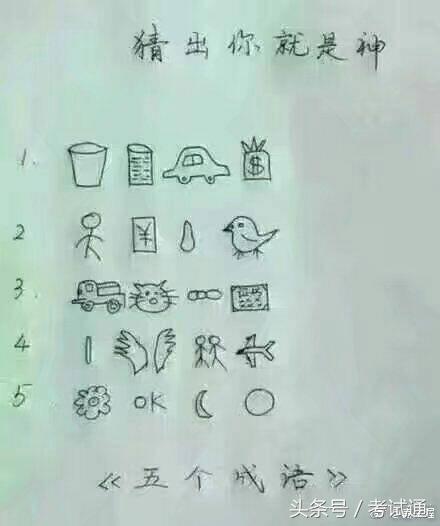 猜出你就是神
1.
$
2
¥
3.
4
5 OK
《五个成语》
头条号/考试通